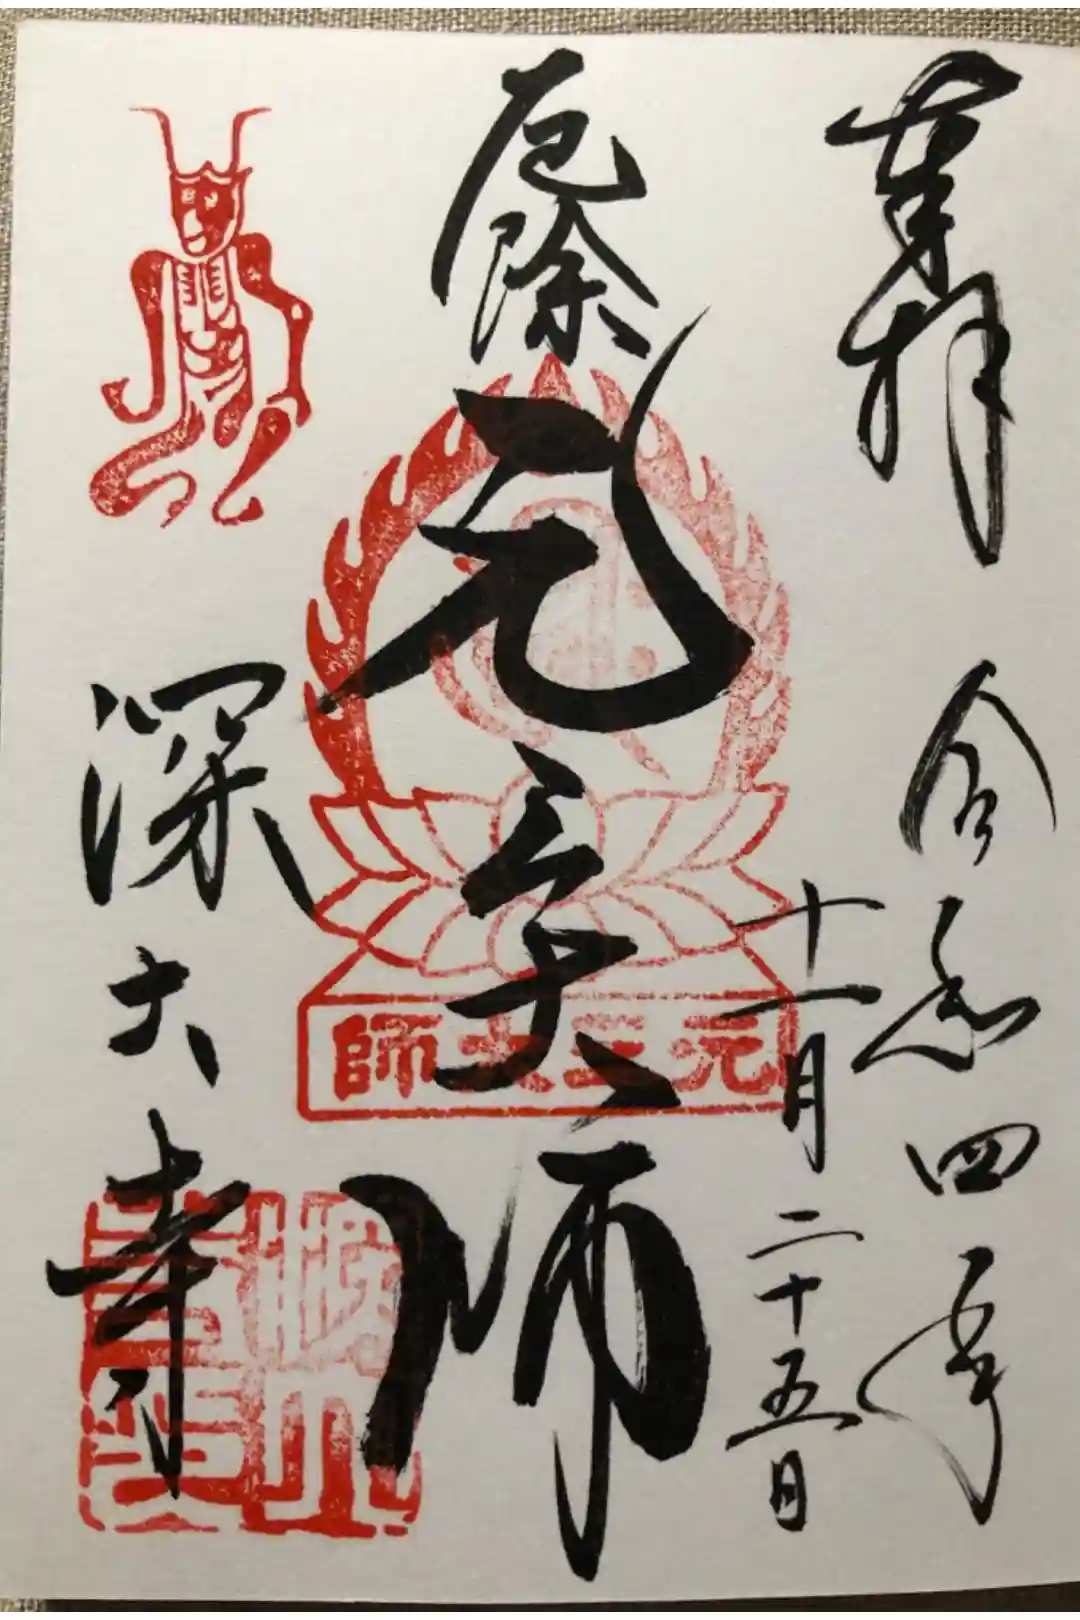 奉拝
令和四年
十一月二十五日
厄除
元三大師
元三大師
深大寺